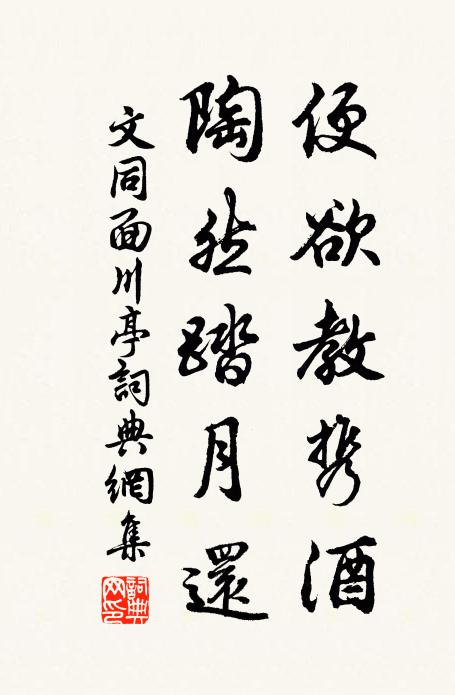 便欲教携酒
陶然踏月還
文同面川亭詞典網集
詞典網印